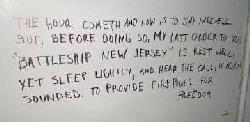 THE HOUR COMETH AND NOW IS TO SAY FAREWELL
BUT, BEFORE DOING SO, MY LAST ORDER TO YOU
"BATTLESHIP NEW JERSEY" IS REST WELL,
YET SLEEP LIGHTLY, AND HEAR THE CALL, IF AGAIN
SOUNDED, TO PROVIDE FIRE POWER FOR
FREEDOM